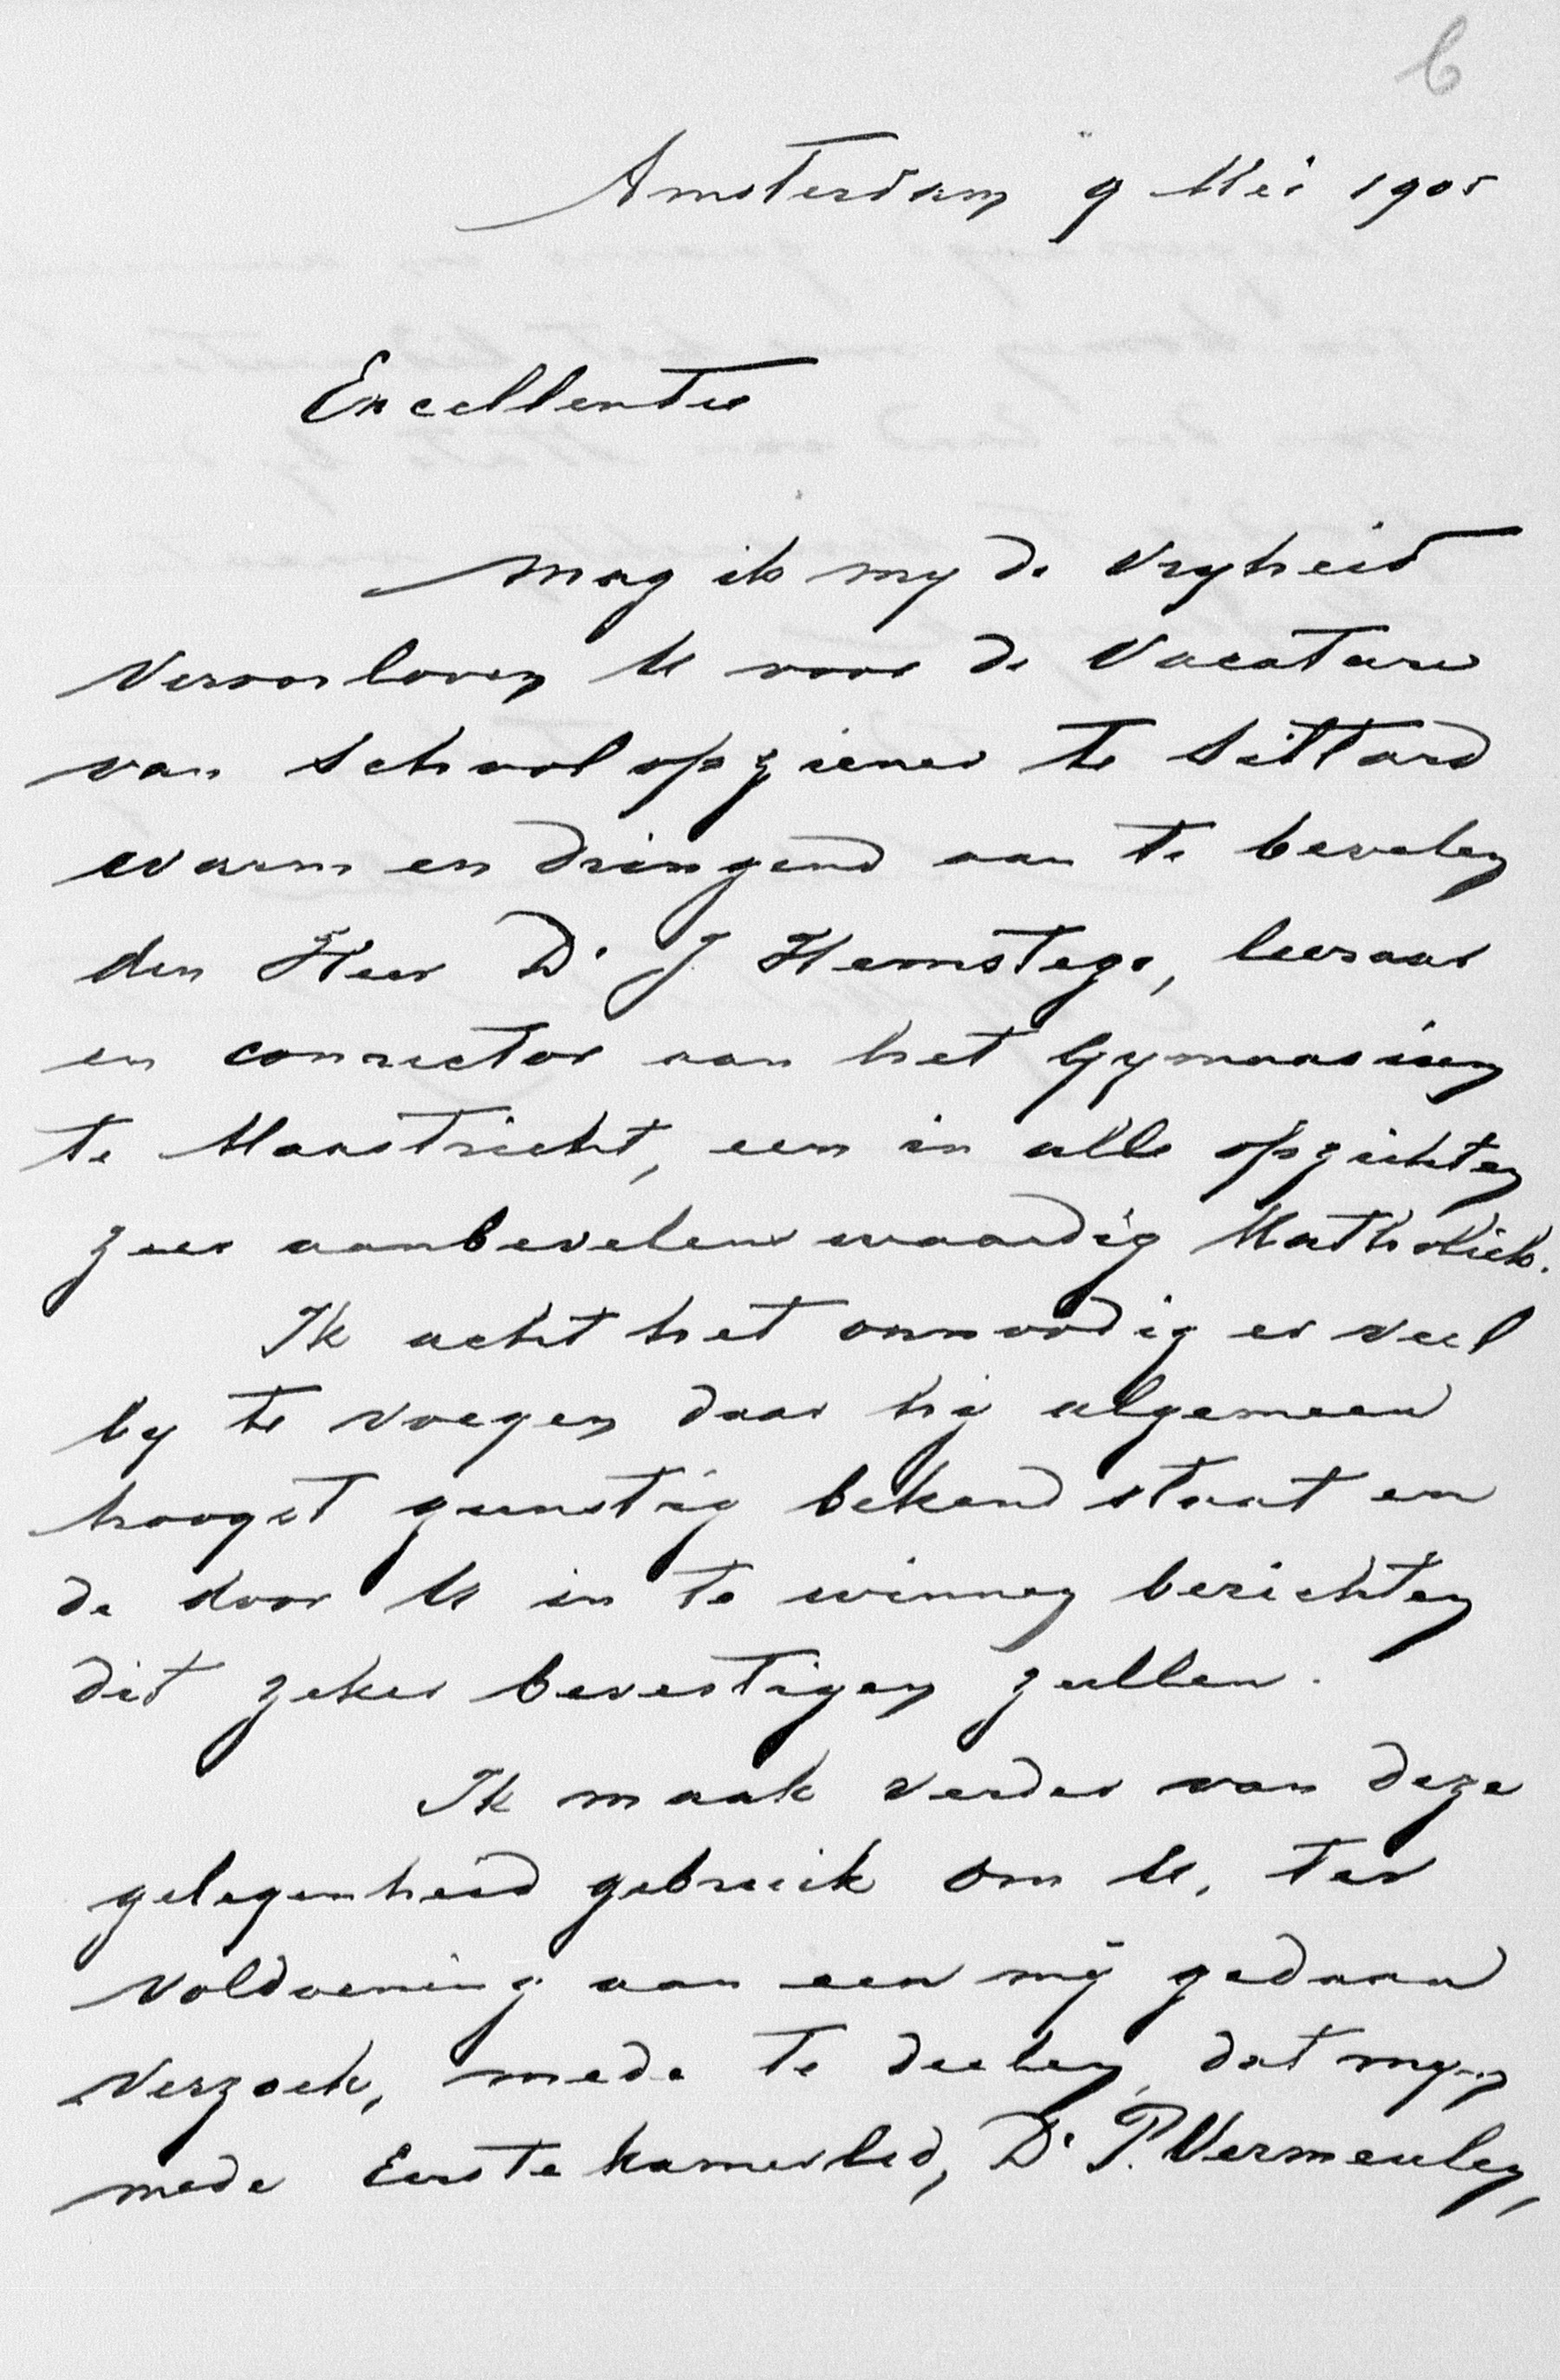 6
Amsterdam 9 Mei 1905
Excellentie
Mag ik my de vryheid
veroorloven U voor de vacature
van schoolopziener te Sittard
warm en dringend aan te bevelen
den Heer Dr J Hemstege, leeraar
en conrector aan het Gymnasium
te Maastricht, een in alle opzichten
zeer aanbevelenswaardig Katholiek.
Ik acht het onnoodig er veel
by te voegen daar hij algemeen
hoogst gunstig bekend staat en
de door U in te winnen berichten
dit zeker bevestigen zullen.
Ik maak verder van deze
gelegenheid gebruik om U, ter
voldoening aan een mij gedaan
verzoek, mede te deelen, dat myn
mede Eerste Kamerlid, Dr P. Vermeulen,